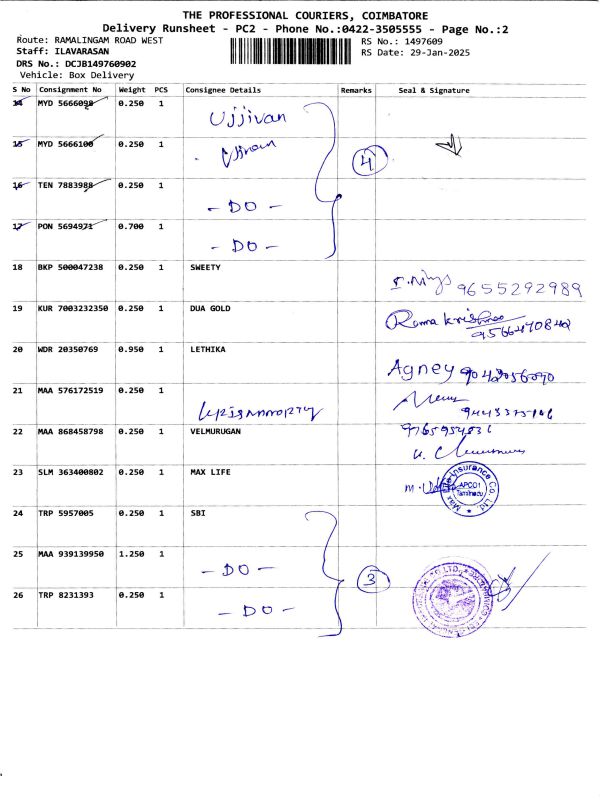 THE PROFESSIONAL COURIERS, COIMBATORE
Delivery Runsheet - PC2 - Phone No.:0422-3505555 - Page No.:2
Route: RAMALINGAM ROAD WEST RS No.: 1497609
Staff: ILAVARASAN RS Date: 29-Jan-2025
DRS No.: DCJB149760902
Vehicle: Box Delivery
S No Consignment No Weight PCS Consignee Details Remarks Seal & Signature
14 MYD 5666098 0.250 1 Ujjivan
15 MYD 5666100 0.250 1 Ujjivan
4
16 TEN 7883988 0.250 1 - DO -
17 PON 5694971 0.700 1 - DO -
18 BKP 500047238 0.250 1 SWEETY 9655292989
19 KUR 7003232350 0.250 1 DUA GOLD Rama krishna
20 WDR 20350769 0.950 1 LETHIKA Agney
21 MAA 576172519 0.250 1
22 MAA 868458798 0.250 1 VELMURUGAN
23 SLM 363400802 0.250 1 MAX LIFE
24 TRP 5957005 0.250 1 SBI
25 MAA 939139950 1.250 1 - DO -
3
26 TRP 8231393 0.250 1 - DO -